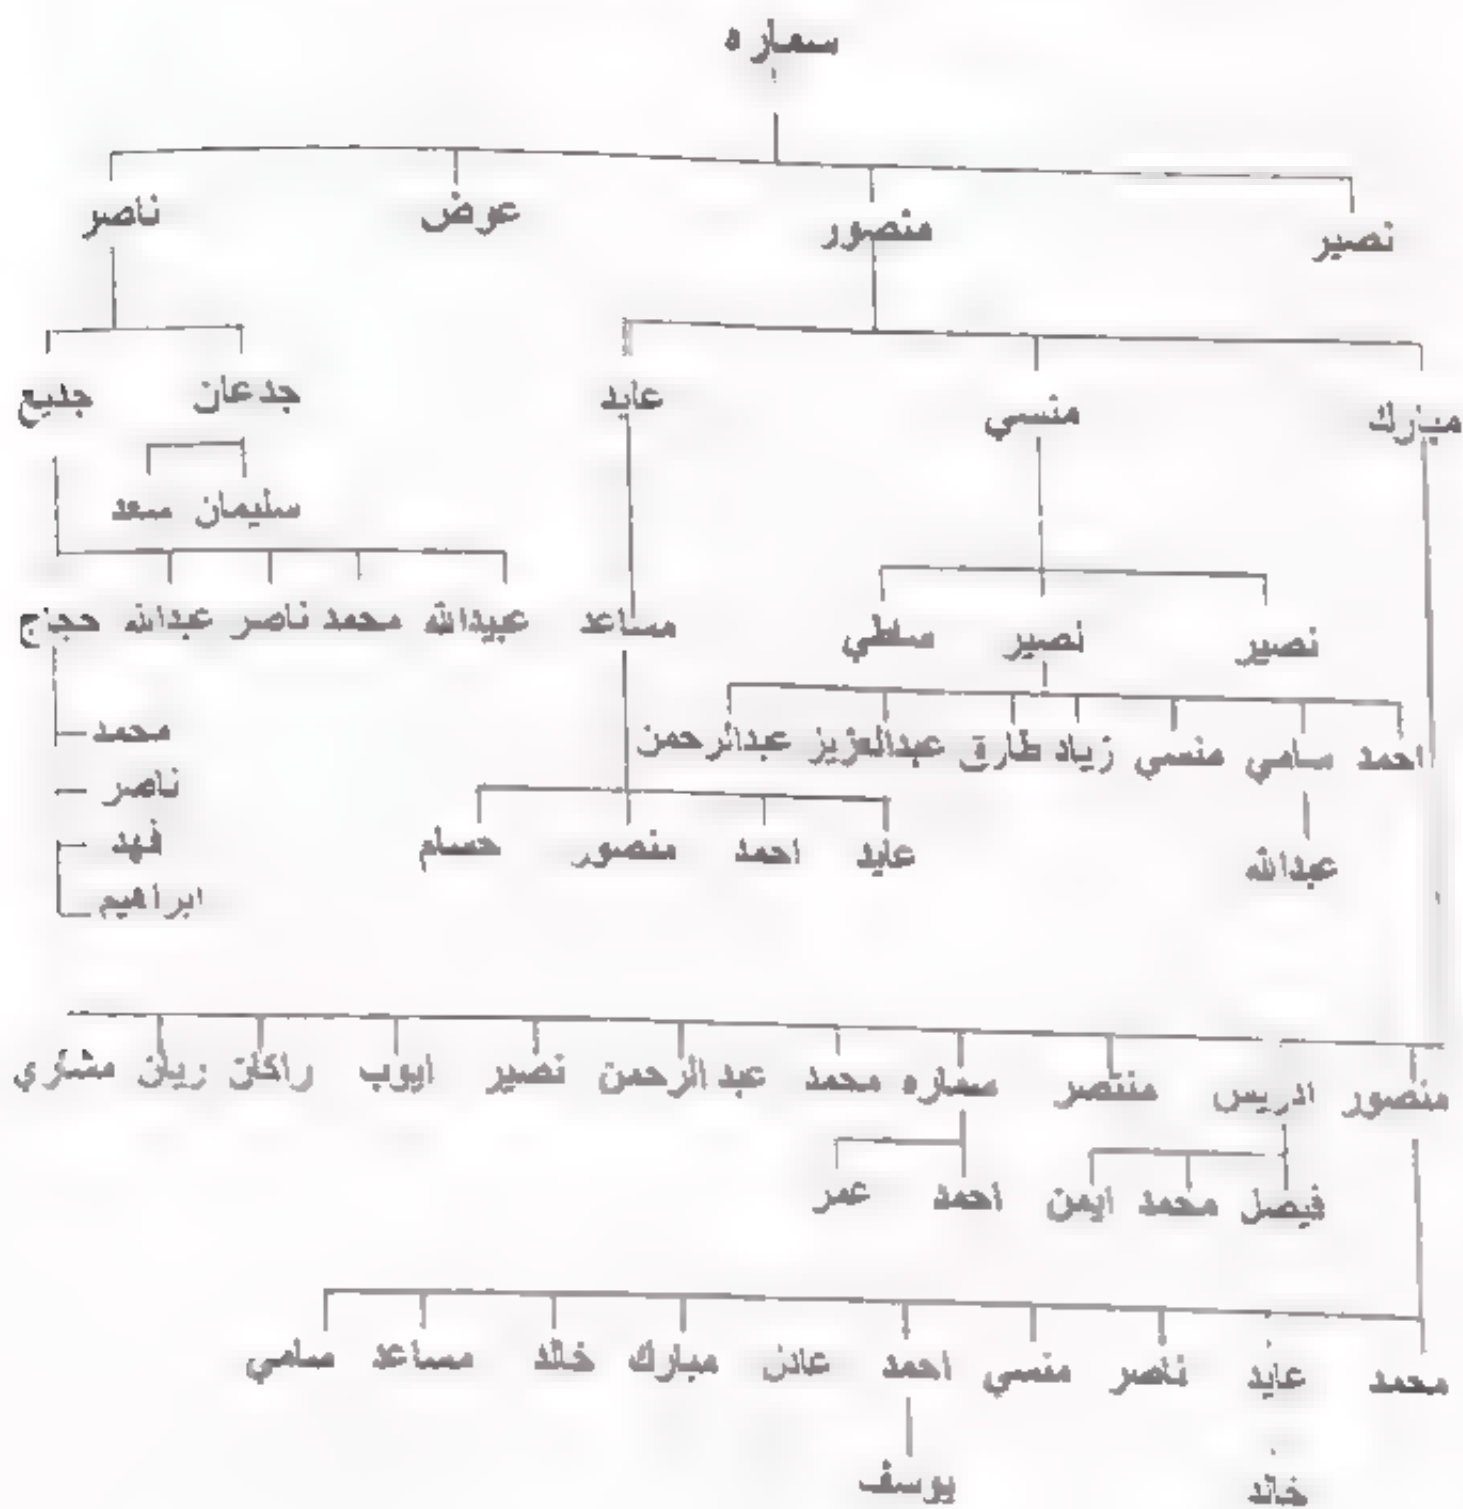 سماره
نصير منصور عوض ناصر
مبارك منسي عايد جدعان جديع
سليمان سعد
نصير نصير سلطي مساعد عبيدالله محمد ناصر عبدالله حجاج
احمد سامي منسي زياد طارق عبدالعزيز عبدالرحمن
محمد
ناصر
عبدالله عايد احمد منصور حسام فهد
ابراهيم
منصور ادريس منتصر سماره محمد عبد الرحمن نصير ايوب راكان ريان مشاري
فيصل محمد ايمن احمد عمر
محمد عايد ناصر منسي احمد عادل مبارك خالد مساعد سامي
خالد يوسف